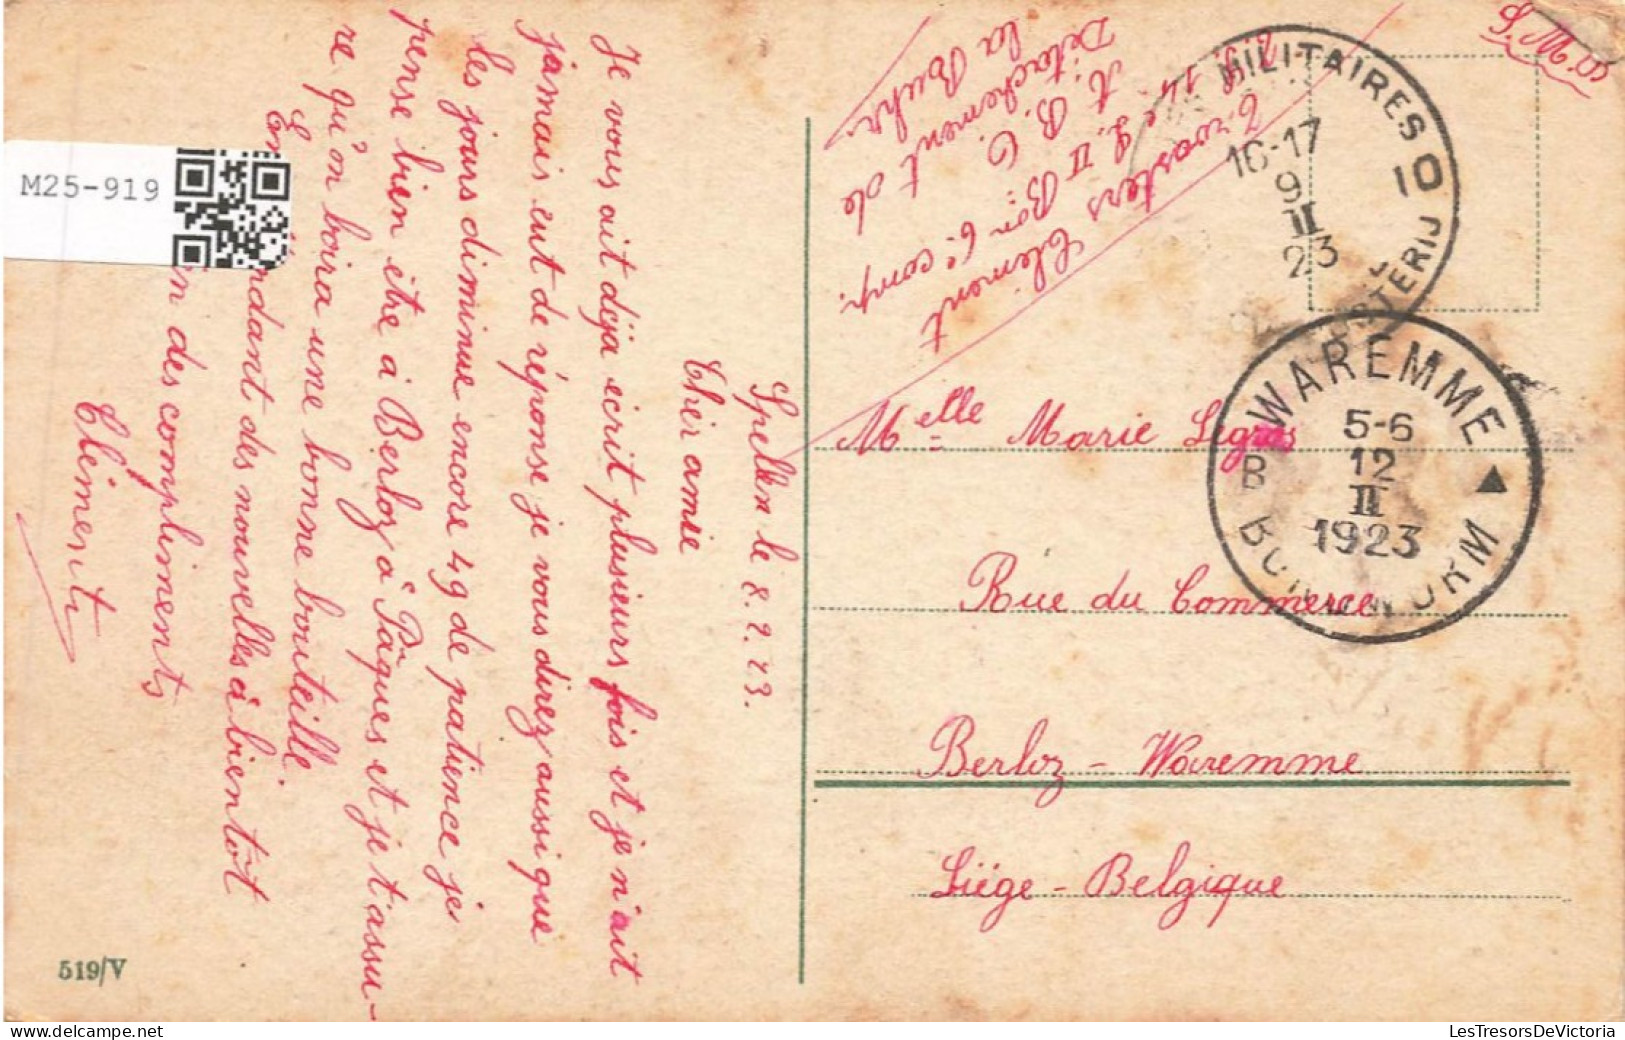 Spellen le 8.2.23.
Chèr amie
Je vous ait déja ecrit plusieurs fois et je n'ait
jamais eut de réponse je vous direz aussi que
les jours diminue encore 49 de patience je
pense bien être à Berloz à Pâques et je t'assu-
re qu'on boira une bonne bouteille.
En
rdant des nouvelles à bientot
n des compliments
Clément
519/V
M25-919
S.M.
Clément
14e L. II Bon 6e comp.
A. B. O.
Détachement de
la Ruhr
MILITAIRES 10
POSTERIJ
16-17
9
II
23
WAREMME
B
5-6
12
II
1923
BORGWORM
Melle Marie Legros
Rue du Commerce
Berloz - Waremme
Liège - Belgique
LesTresorsDeVictoria